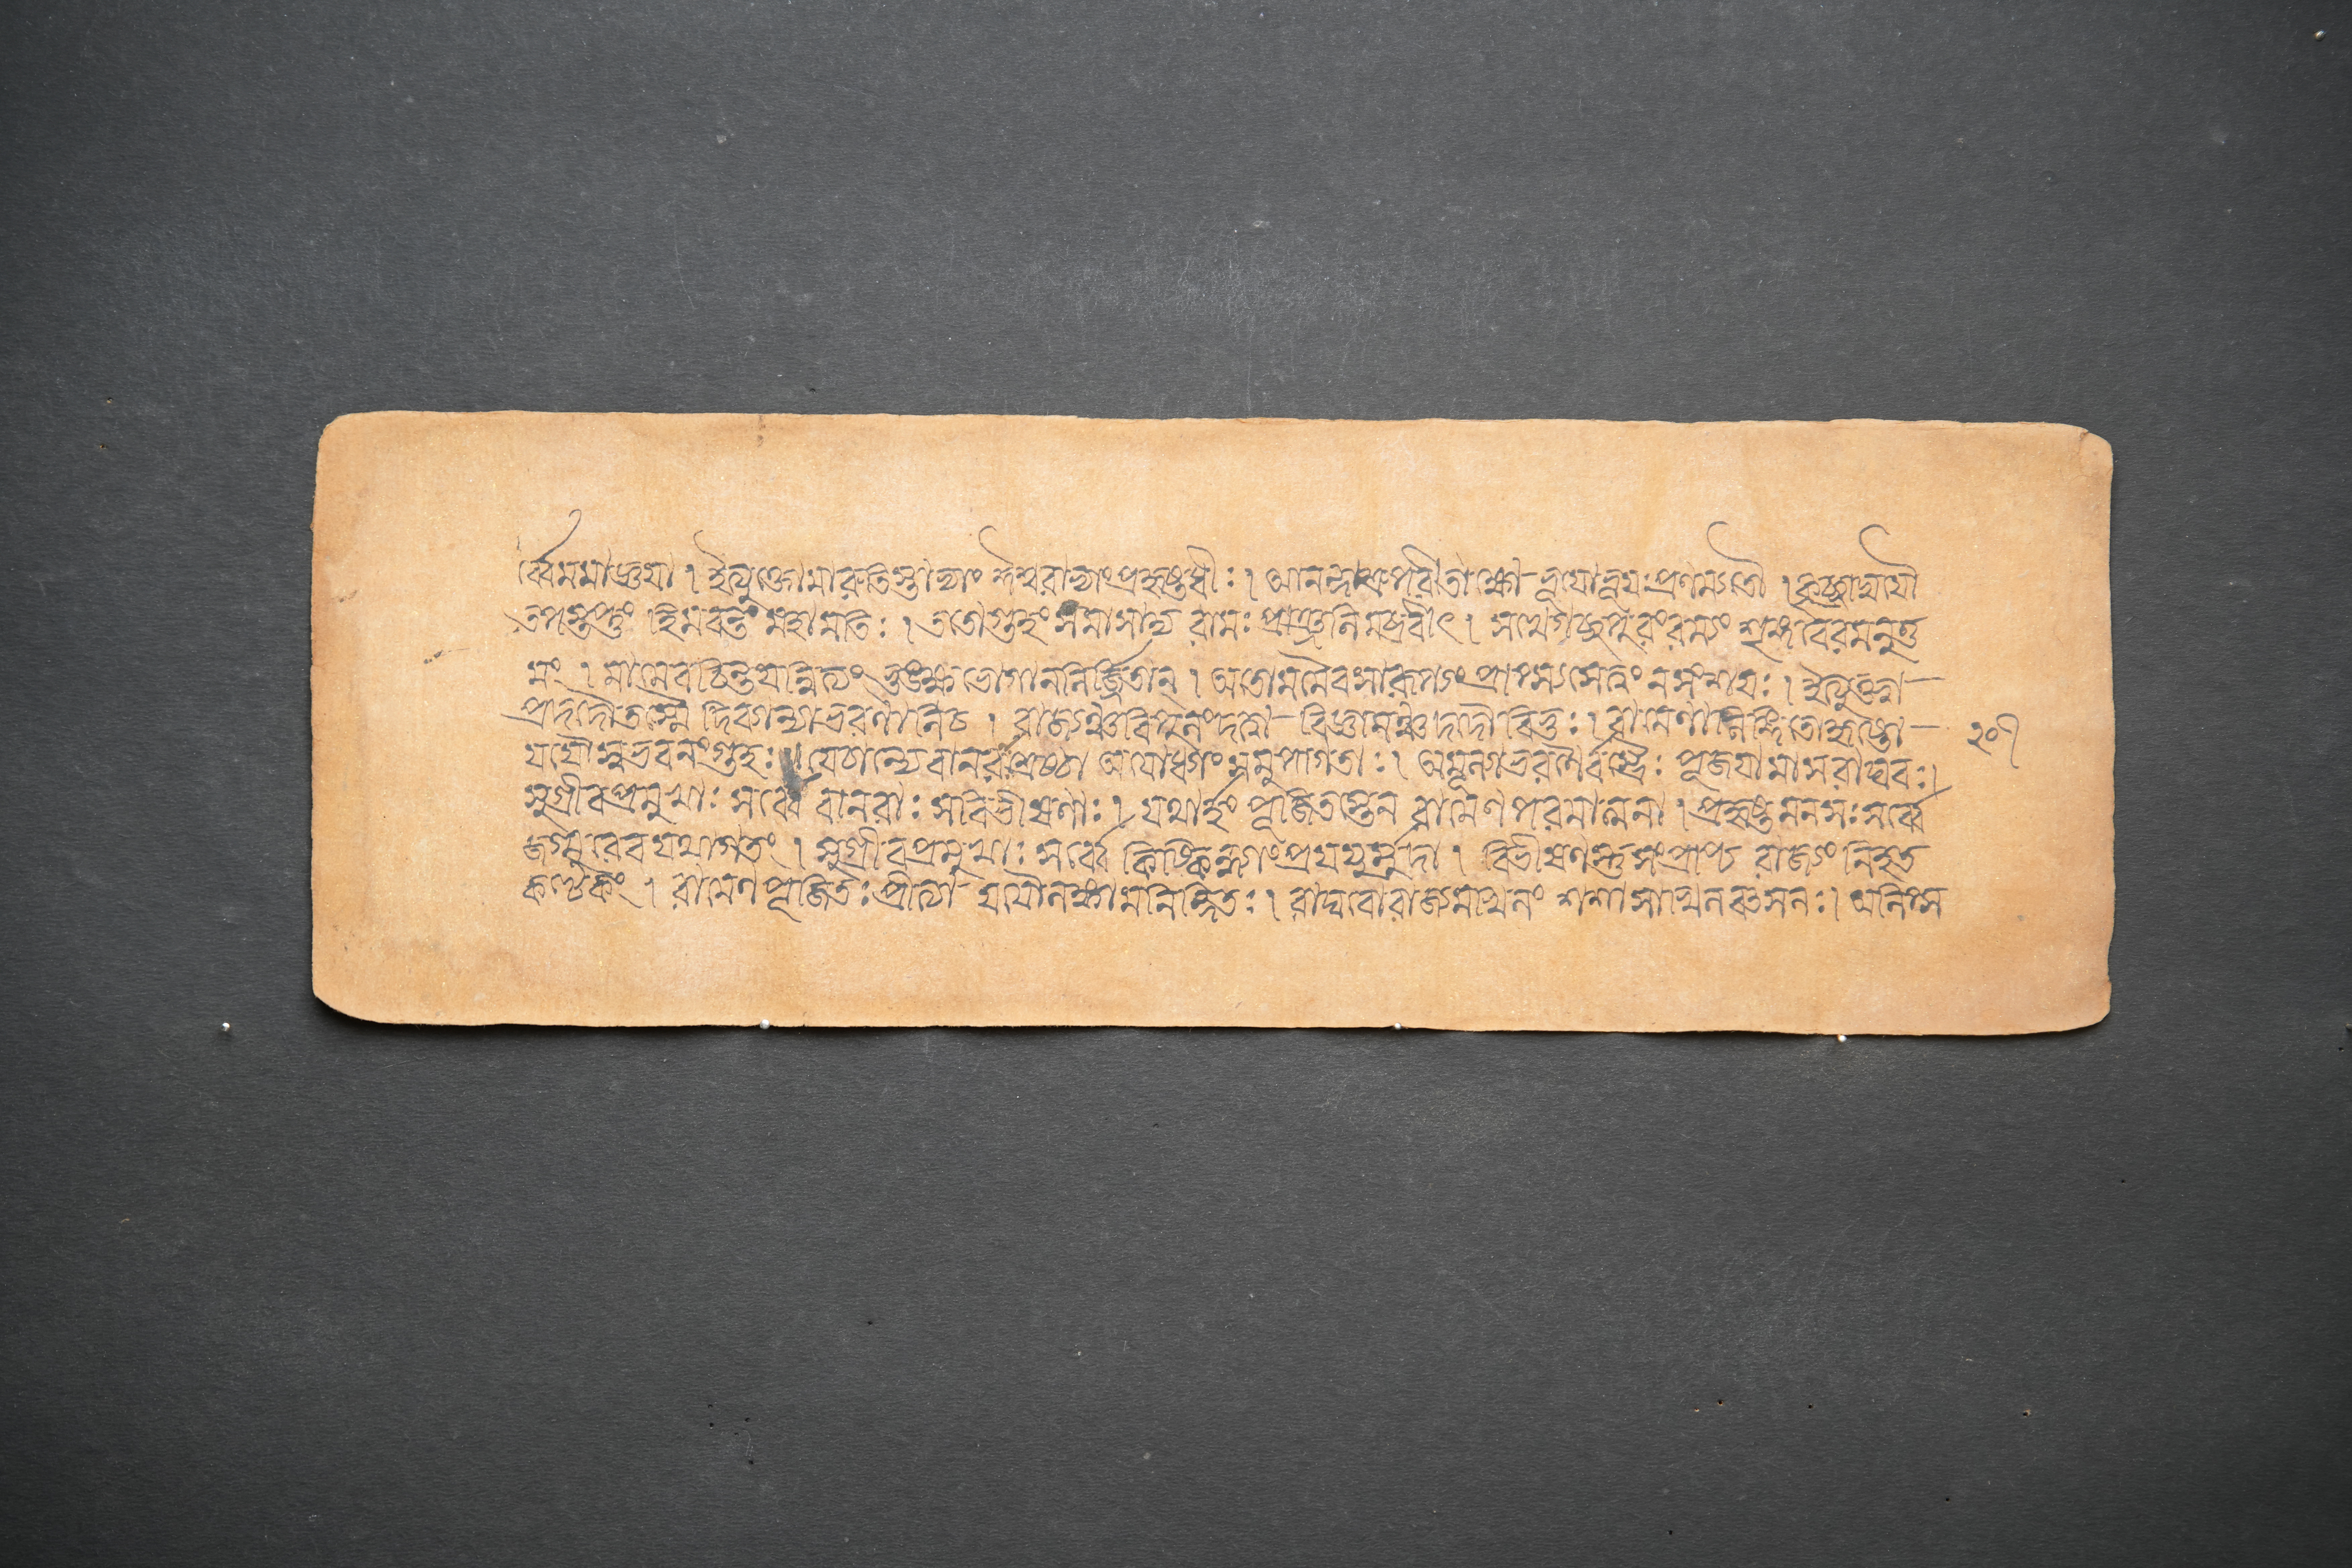 র্ব্বেমমাজ্ঞয়া । ইত্যুক্তোমারুতিস্তাভ্যাং ঈশ্বরাভ্যাংপ্রহৃষ্টধীঃ । আনন্দাশ্রুপরীতাক্ষো-ভূয়োভূয়ঃপ্রণম্যতৌ । কৃচ্ছ্রাদ্যযৌ
তপস্তপ্তুং হিমবন্তং মহামতিঃ । ততোগুহং সমাসাদ্য রামঃ প্রাঞ্জলিমব্রবীৎ । সখেগচ্ছপুরংরম্যং শৃঙ্গবেরমনুত্ত
মং । মামেবচিন্তয়ন্নিত্যং ভুঙ্ক্ষ্বভোগাননিজার্জিতান্ । অতোমমৈবসারূপ্যং প্রাপ্স্যসেত্বং নসংশয়ঃ । ইত্যুক্ত্বা—
প্রাদদৌতস্মৈ দিব্যান্যাভরণানিচ । রাজ্যঞ্চবিপুলংদত্বা-বিজ্ঞানঞ্চদদৌবিভুঃ । রামেণালিঙ্গিতোহৃষ্টো—
যযৌস্বভবনংগুহঃ ॥ যেচান্যেবানরাঃশ্রেষ্ঠা অযোধ্যাং সমুপাগতাঃ । অমূল্যাভরণৈর্বস্ত্রৈঃ পূজয়ামাসরাঘবঃ ।
সুগ্রীবপ্রমুখাঃ সর্ব্বে বানরাঃ সবিভীষণাঃ । যথার্হং পূজিতস্তেন রামেণপরমাত্মনা । প্রহৃষ্টমনসঃসর্ব্বে
জগ্মুরেবযথাগতং । সুগ্রীবপ্রমুখাঃ সর্ব্বে কিষ্কিন্ধাংপ্রযযুর্মুদা । বিভীষণস্তুসংপ্রাপ্য রাজ্যং নিহত
কণ্টকং । রামেণপূজিতঃপ্রীত্যা-যযৌলঙ্কামনিন্দিতঃ । রাঘবোরাজ্যমখিলং শশাসাখিলবৎসলঃ । অনিপ্স
২০৭